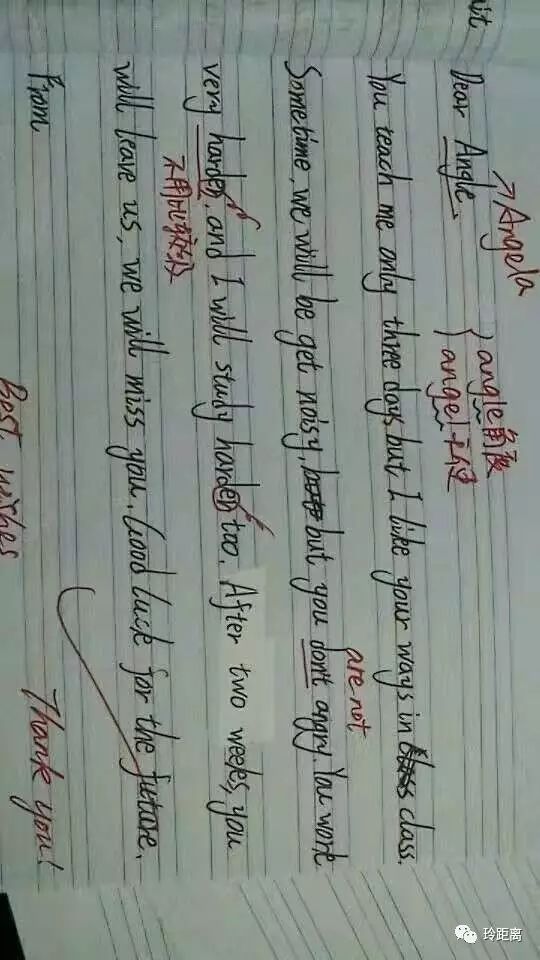 Dear Angle,
→ Angela
angle 角度
angel 天使
You teach me only three days but I like your ways in class.
Sometime, we will be get noisy, but you don't angry. You work
are not
very harder, and I will study harder too. After two weeks, you
不用比较级
will leave us, we will miss you. Good luck for the future.
From
Best wishes
Thank you!
玲距离